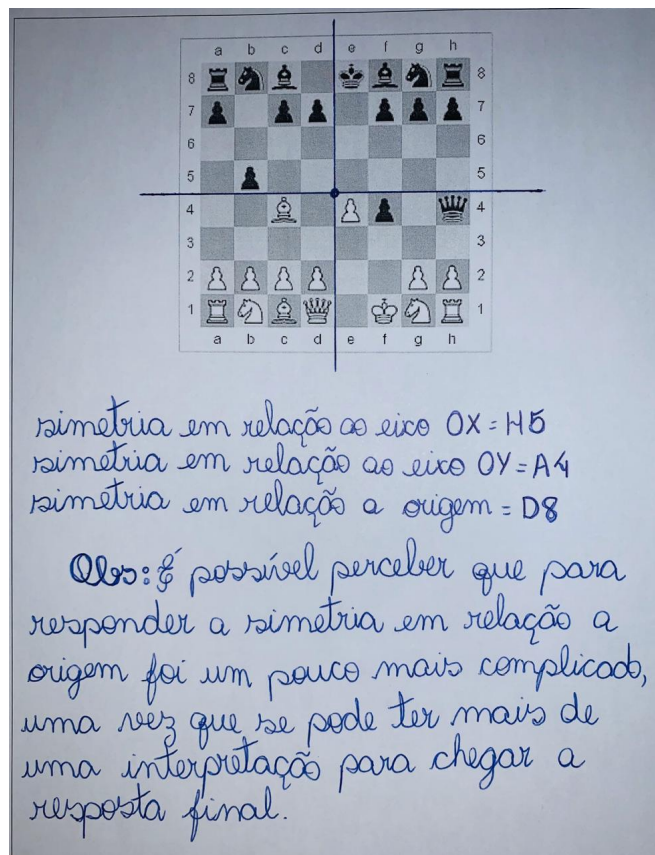 a b c d e f g h
8 8
7 7
6 6
5 5
4 4
3 3
2 2
1 1
a b c d e f g h
simetria em relação ao eixo OX = H5
simetria em relação ao eixo OY = A4
simetria em relação a origem = D8
Obs: É possível perceber que para
responder a simetria em relação a
origem foi um pouco mais complicado,
uma vez que se pode ter mais de
uma interpretação para chegar a
resposta final.